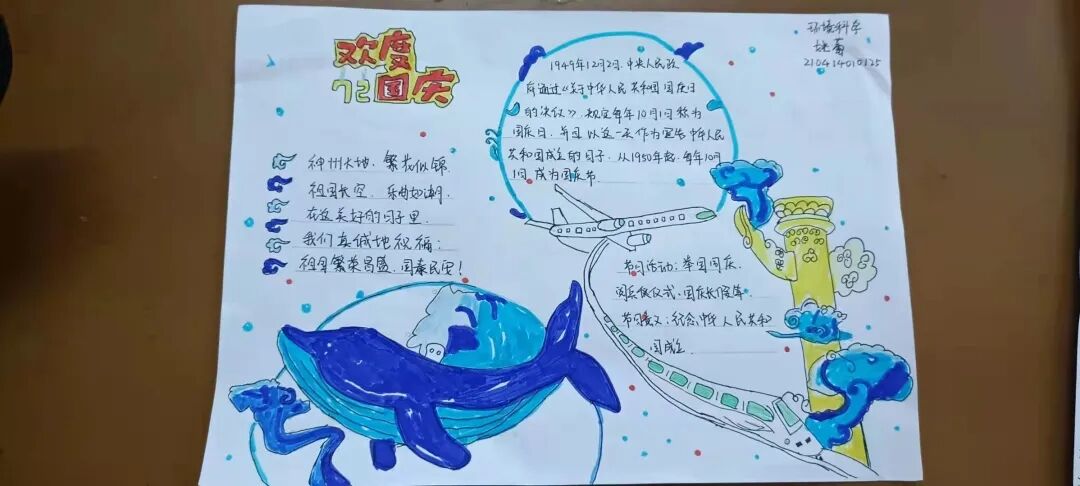 欢度
72国庆
神州大地,繁花似锦.
祖国长空,乐曲如潮.
在这美好的日子里.
我们真诚地祝福:
祖国繁荣昌盛,国泰民安!
1949年12月2日,中央人民政
府通过《关于中华人民共和国国庆日
的决议》,规定每年10月1日称为
国庆日,并国以这一天作为宣告中华人民
共和国成立的日子.从1950年起,每年10月
1日,成为国庆节.
环境科学
210414010125
节日活动:举国国庆,
阅兵仪式,国庆长假等.
节日意义:纪念中华人民共和
国成立.